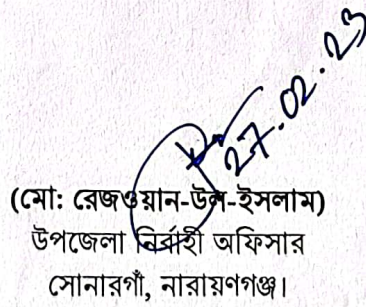 27.02.23
(মো: রেজওয়ান-উল-ইসলাম)
উপজেলা নির্বাহী অফিসার
সোনারগাঁ, নারায়ণগঞ্জ।